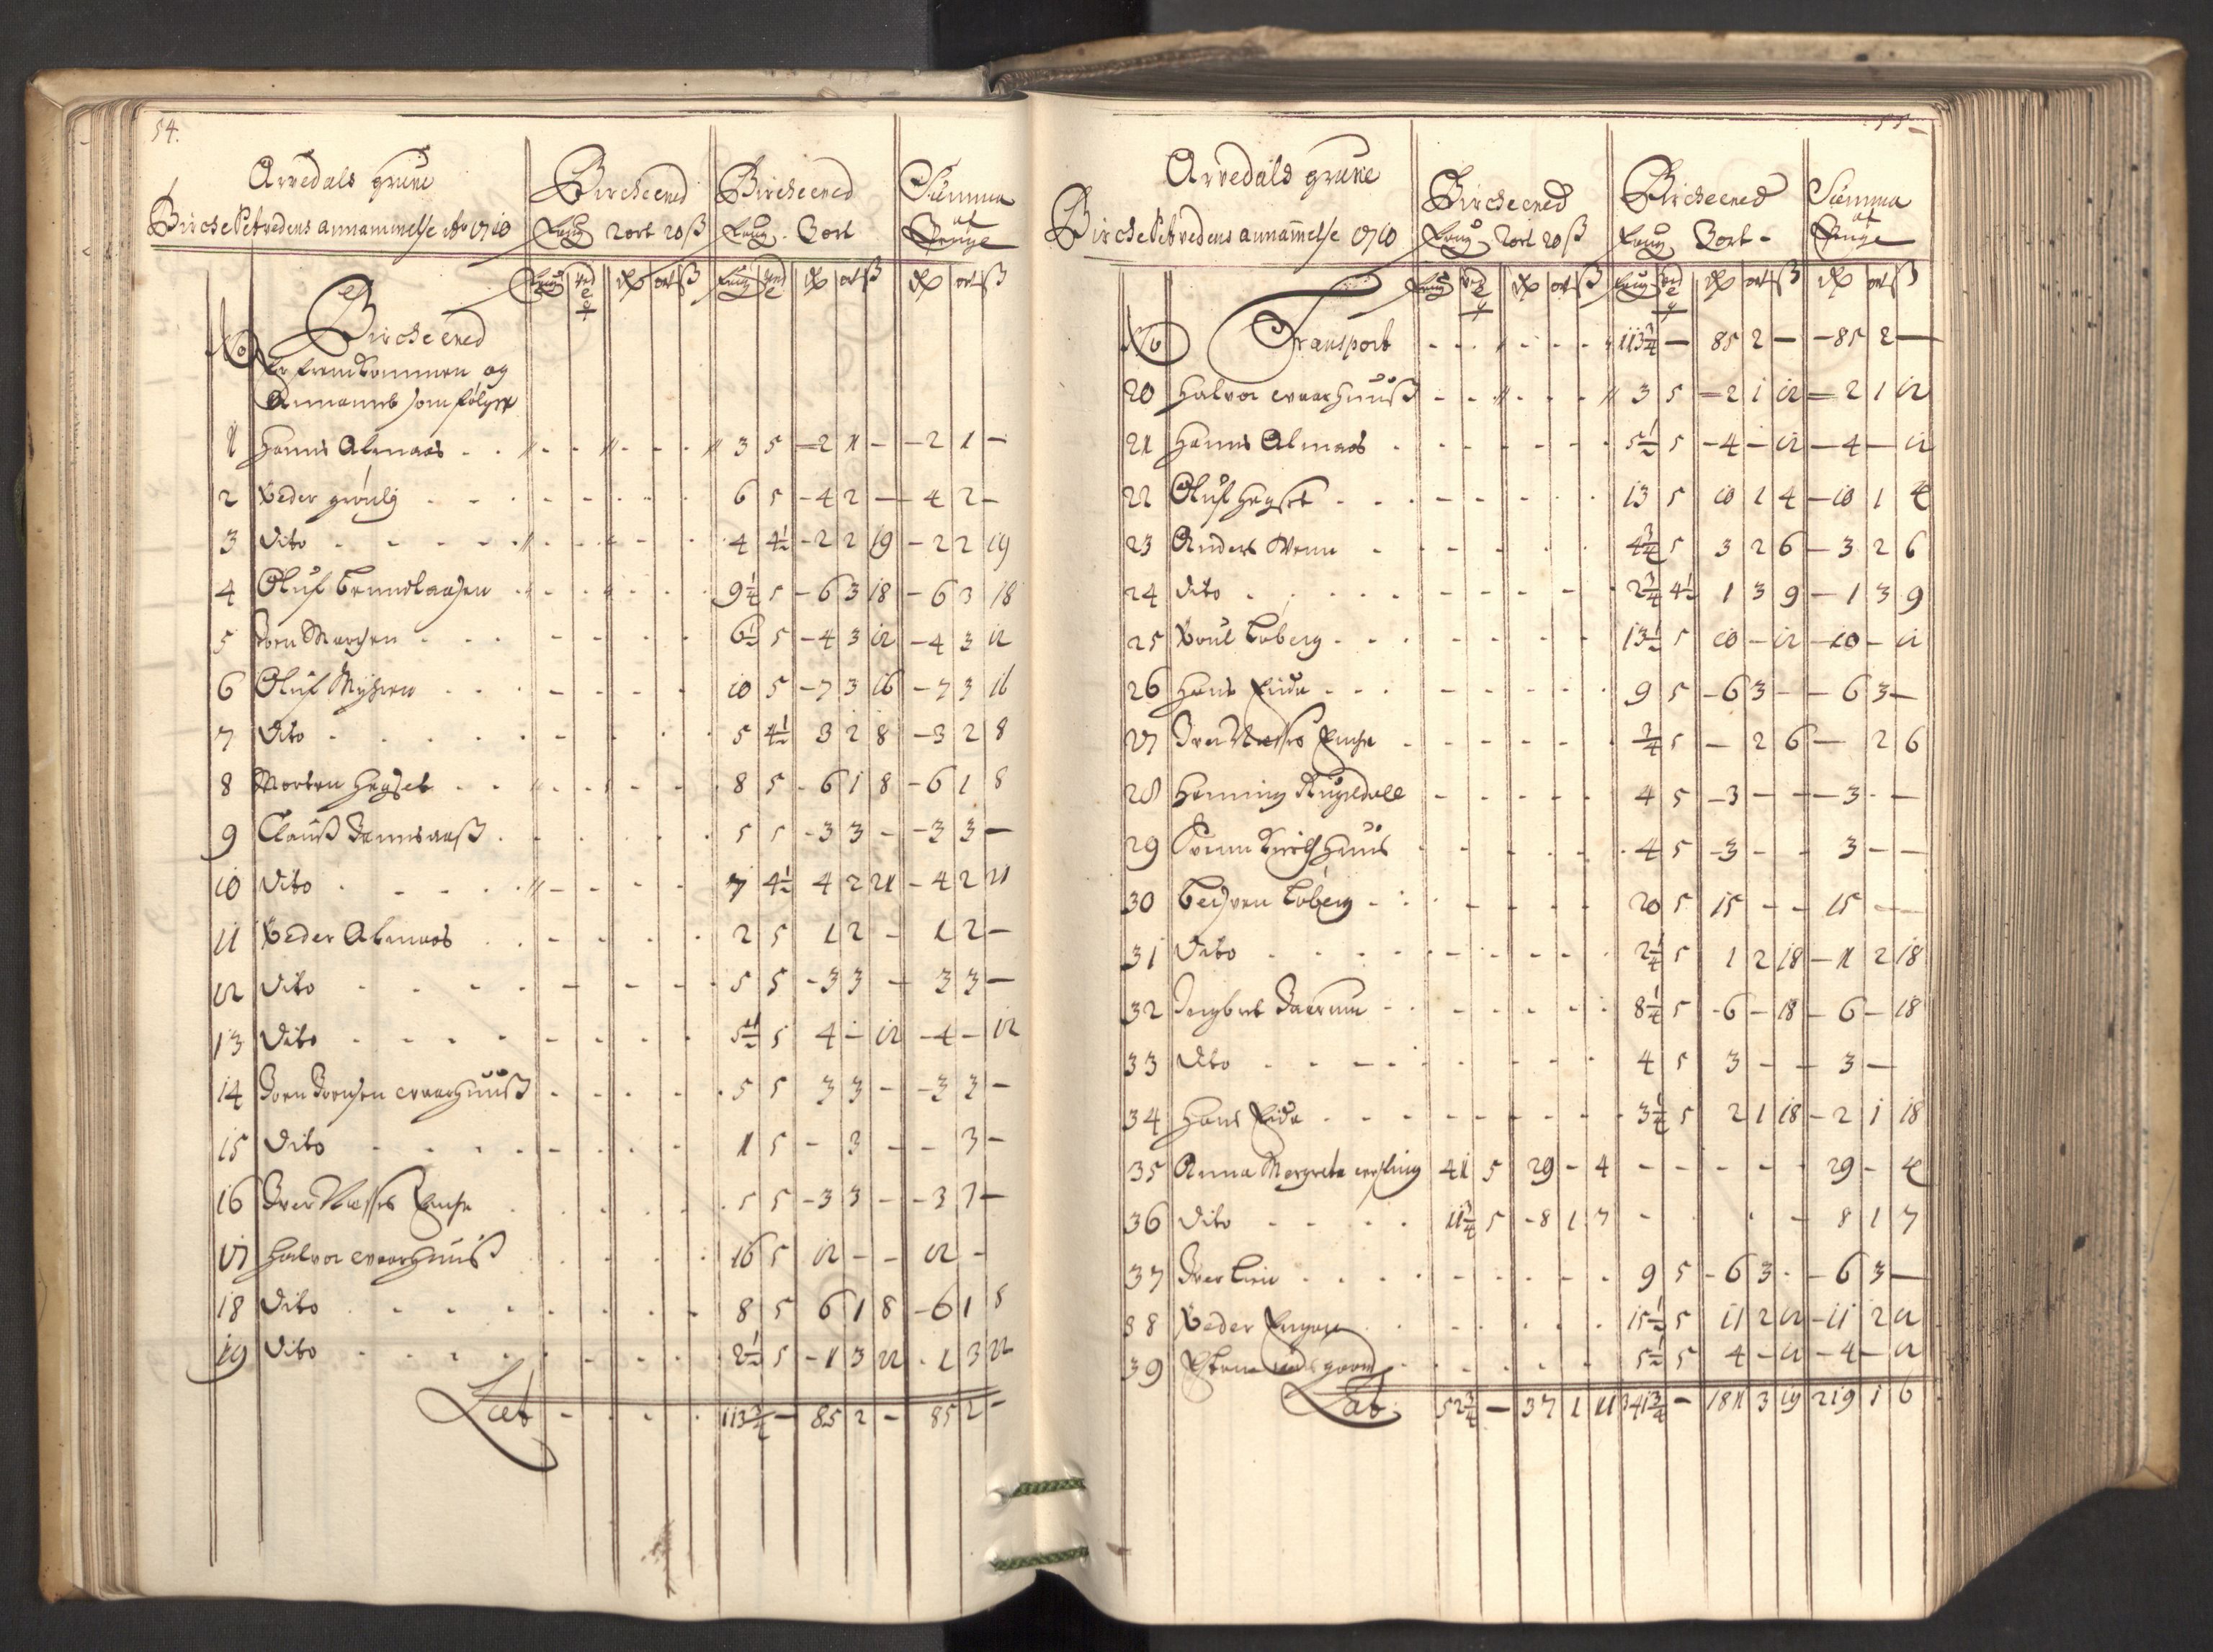 54.
Arvedals grube
BircheVetvedens annammelse Ao 1710
Bircheved
Faug 2 ort 20 ß
Bircheved
Faug 3 ort
Summa af Penge
No Bircheved
Er fremkommen og
Annammet som følger
1 Hanns Almaas 3 5 2 1 - 2 1 -
2 Peder grønlj 6 5 4 2 - 4 2 -
3 Dito 4 4½ 2 2 19 2 2 19
4 Oluf Trundlassen 9¼ 5 6 3 18 6 3 18
5 Joen Marchen 6½ 5 4 3 12 4 3 12
6 Oluf Myhren 10 5 7 3 16 7 3 16
7 Dito 5 4½ 3 2 8 3 2 8
8 Morten Hegset 8 5 6 1 8 6 1 8
9 Clauß 5 5 3 3 - 3 3 -
10 Dito 7 4½ 4 2 21 4 2 21
11 Peder Almaas 2 5 1 2 - 1 2 -
12 Dito 5 5 3 3 - 3 3 -
13 Dito 5½ 5 4 - 12 4 - 12
14 Joen Joensen Evarhuuß 5 5 3 3 - 3 3 -
15 Dito 1 5 - 3 - - 3 -
16 Iver Næsses Enche 5 5 3 3 - 3 3 -
17 Halvor Evarhuuß 16 5 12 - - 12 -
18 Dito 8 5 6 1 8 6 1 8
19 Dito 2½ 5 1 3 12 1 3 12
Lat 113¾ - 85 2 - 85 2 -
55
Arvedals grube
BircheVetvedens annamelse 1710
Bircheved
Faug 2 ort 20 ß
Bircheved
Faug 3 ort
Summa af Penge
No Transport 113¾ - 85 2 - 85 2 -
20 Halvor Evarhuuß 3 5 2 1 12 2 1 12
21 Hanns Almaas 5½ 5 4 - 12 4 - 12
22 Oluf Hegset 13 5 10 1 4 10 1 4
23 Anders Wenn 4¾ 5 3 2 6 3 2 6
24 Dito 2¾ 4½ 1 3 9 1 3 9
25 Poul Løberg 13½ 5 10 - 12 10 - 12
26 Hans Eide 9 5 6 3 - 6 3 -
27 Iver Næsses Enche ¾ 5 - 2 6 - 2 6
28 Henning Rugeldall 4 5 3 - - 3 - -
29 Svenn Kirchhuus 4 5 3 - - 3 - -
30 Løberg 20 5 15 - - 15 - -
31 Dito 2¼ 5 1 2 18 1 2 18
32 Ingbret 8¼ 5 6 - 18 6 - 18
33 Dito 4 5 3 - - 3 -
34 Hans Eide 3¼ 5 2 1 18 2 1 18
35 Anna Margreta 41 5 29 - 4 - - - - - 29 - 4
36 Dito 11¾ 5 8 1 7 - - 8 1 7
37 Iver Lien 9 5 6 3 - 6 3 -
38 Peder Engan 15½ 5 11 2 12 11 2 12
39 5½ 5 4 - 12 4 - 12
Lat 52¾ - 37 1 11 341¾ - 181 3 19 219 1 6